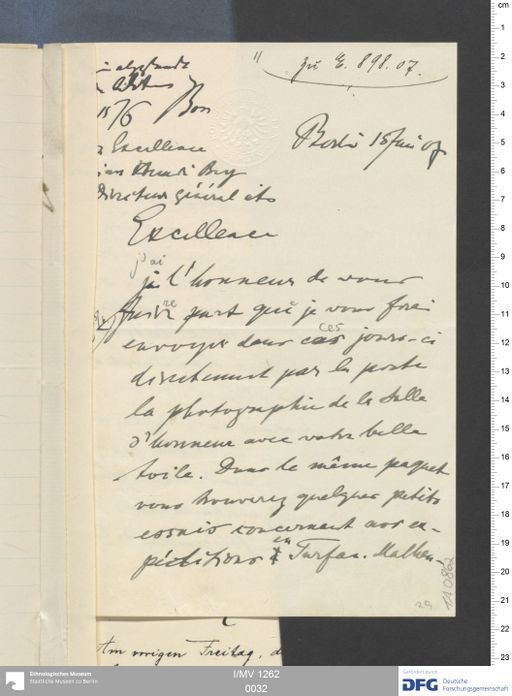 zu E. 898. 07.
15/6
Berlin 15 Juni 07
Excellence
Hamdi Bey
Directeur général etc
Excellence
j'ai
l'honneur de vous
faire part que je vous ferai
envoyer dans ces jours-ci
directement par la poste
la photographie de la Salle
d'honneur avec votre belle
toile. Dans le même paquet
vous trouverez quelques petits
essais concernant nos ex-
péditions en Turfan. Malheu-
29
1A 0862
Am vorigen Freitag, d
cm
1
2
3
4
5
6
7
8
9
10
11
12
13
14
15
16
17
18
19
20
21
22
23
Ethnologisches Museum
Staatliche Museen zu Berlin
I/MV 1262
0032
Gefördert durch
DFG Deutsche
Forschungsgemeinschaft